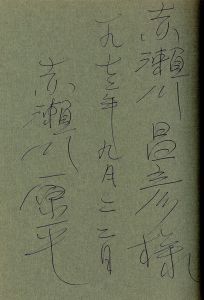 赤瀬川昌彦様
一九七三年九月二二日
赤瀬川原平